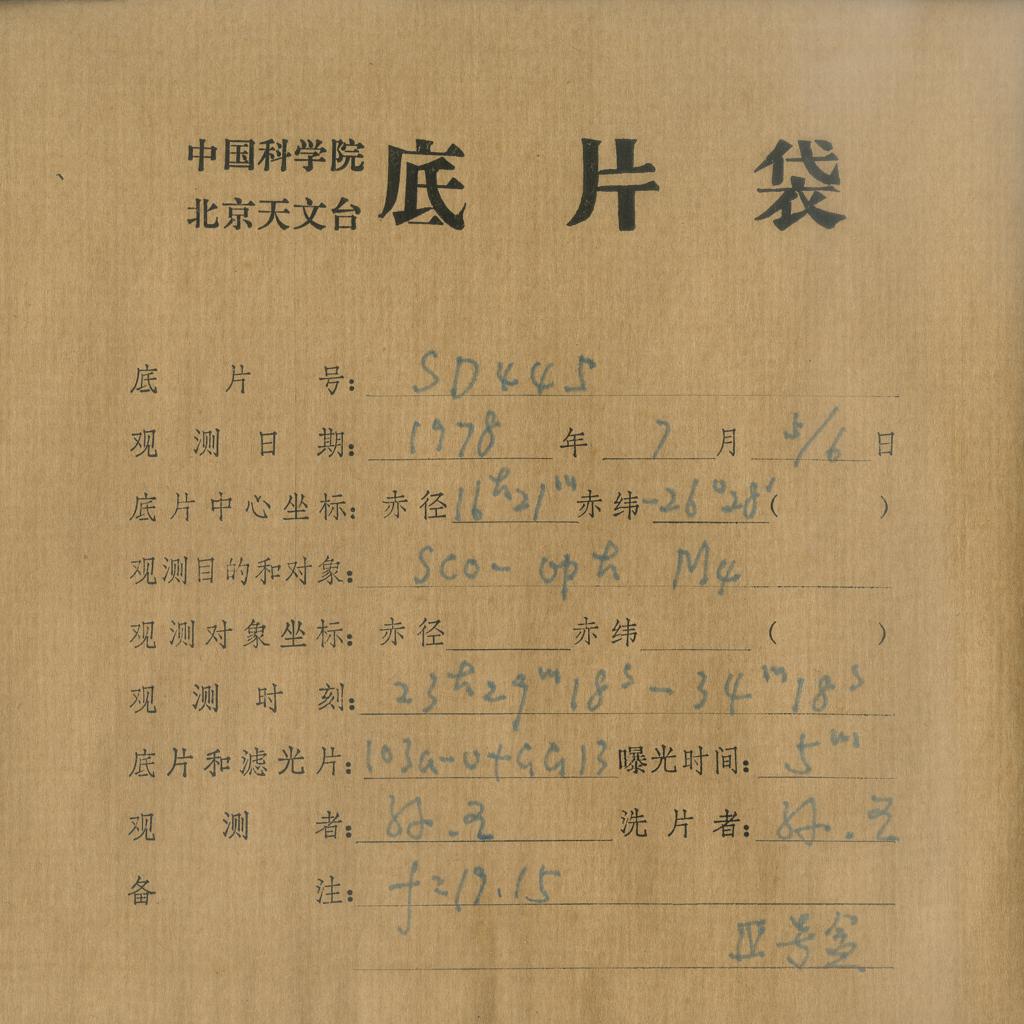 中国科学院
北京天文台
底片袋
底片号: SD445
观测日期: 1978年7月5/6日
底片中心坐标: 赤径16ʰ21ᵐ赤纬-26°28′( )
观测目的和对象: Sco-oph M4
观测对象坐标: 赤径 赤纬 ( )
观测时刻: 23ʰ29ᵐ18ˢ-34ᵐ18ˢ
底片和滤光片: 103a-O+GG13 曝光时间: 5ᵐ
观测者: 孙. 洗片者: 孙.
备注: f=19.15
Ⅳ号盒